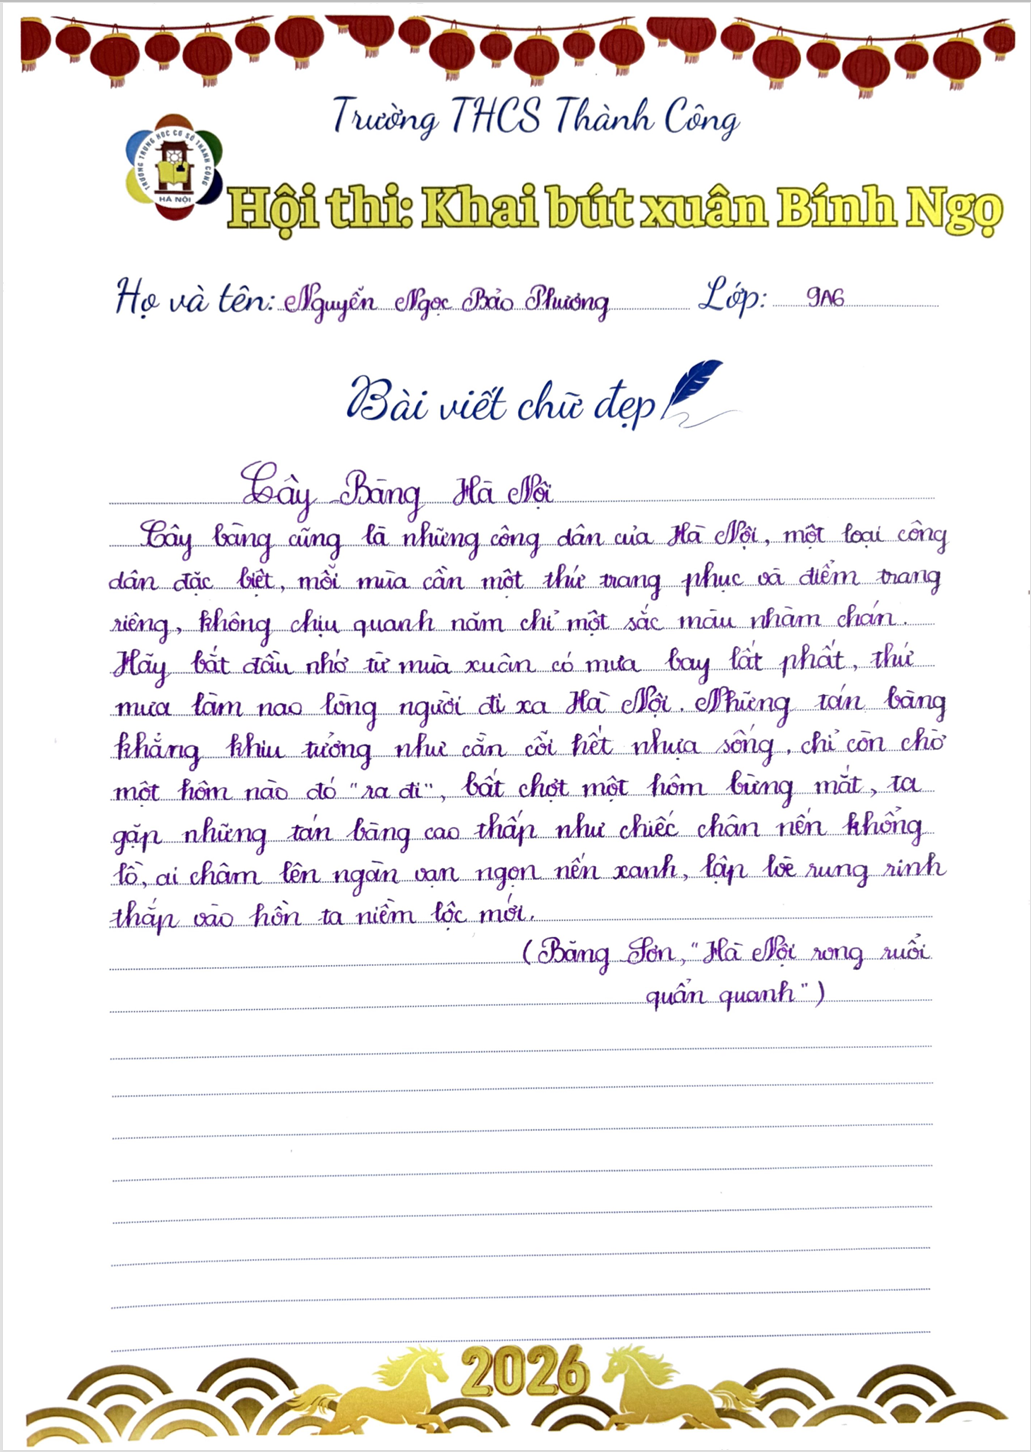 Trường THCS Thành Công
TRƯỜNG TRUNG HỌC CƠ SỞ THÀNH CÔNG
HÀ NỘI
Hội thi: Khai bút xuân Bính Ngọ
Họ và tên: Nguyễn Ngọc Bảo Phương Lớp: 9A6
Bài viết chữ đẹp
Cây Bàng Hà Nội
Cây bàng cũng là những công dân của Hà Nội, một loại công
dân đặc biệt, mỗi mùa cần một thứ trang phục và điểm trang
riêng, không chịu quanh năm chỉ một sắc màu nhàm chán.
Hãy bắt đầu nhớ từ mùa xuân có mưa bay lất phất, thứ
mưa làm nao lòng người đi xa Hà Nội. Những tán bàng
khẳng khiu tưởng như cằn cỗi hết nhựa sống, chỉ còn chờ
một hôm nào đó "ra đi", bất chợt một hôm bừng mắt, ta
gặp những tán bàng cao thấp như chiếc chân nến khổng
lồ, ai châm lên ngàn vạn ngọn nến xanh, lập loè rung rinh
thắp vào hồn ta niềm lộc mới.
(Băng Sơn, "Hà Nội rong ruổi
quẩn quanh")
2026